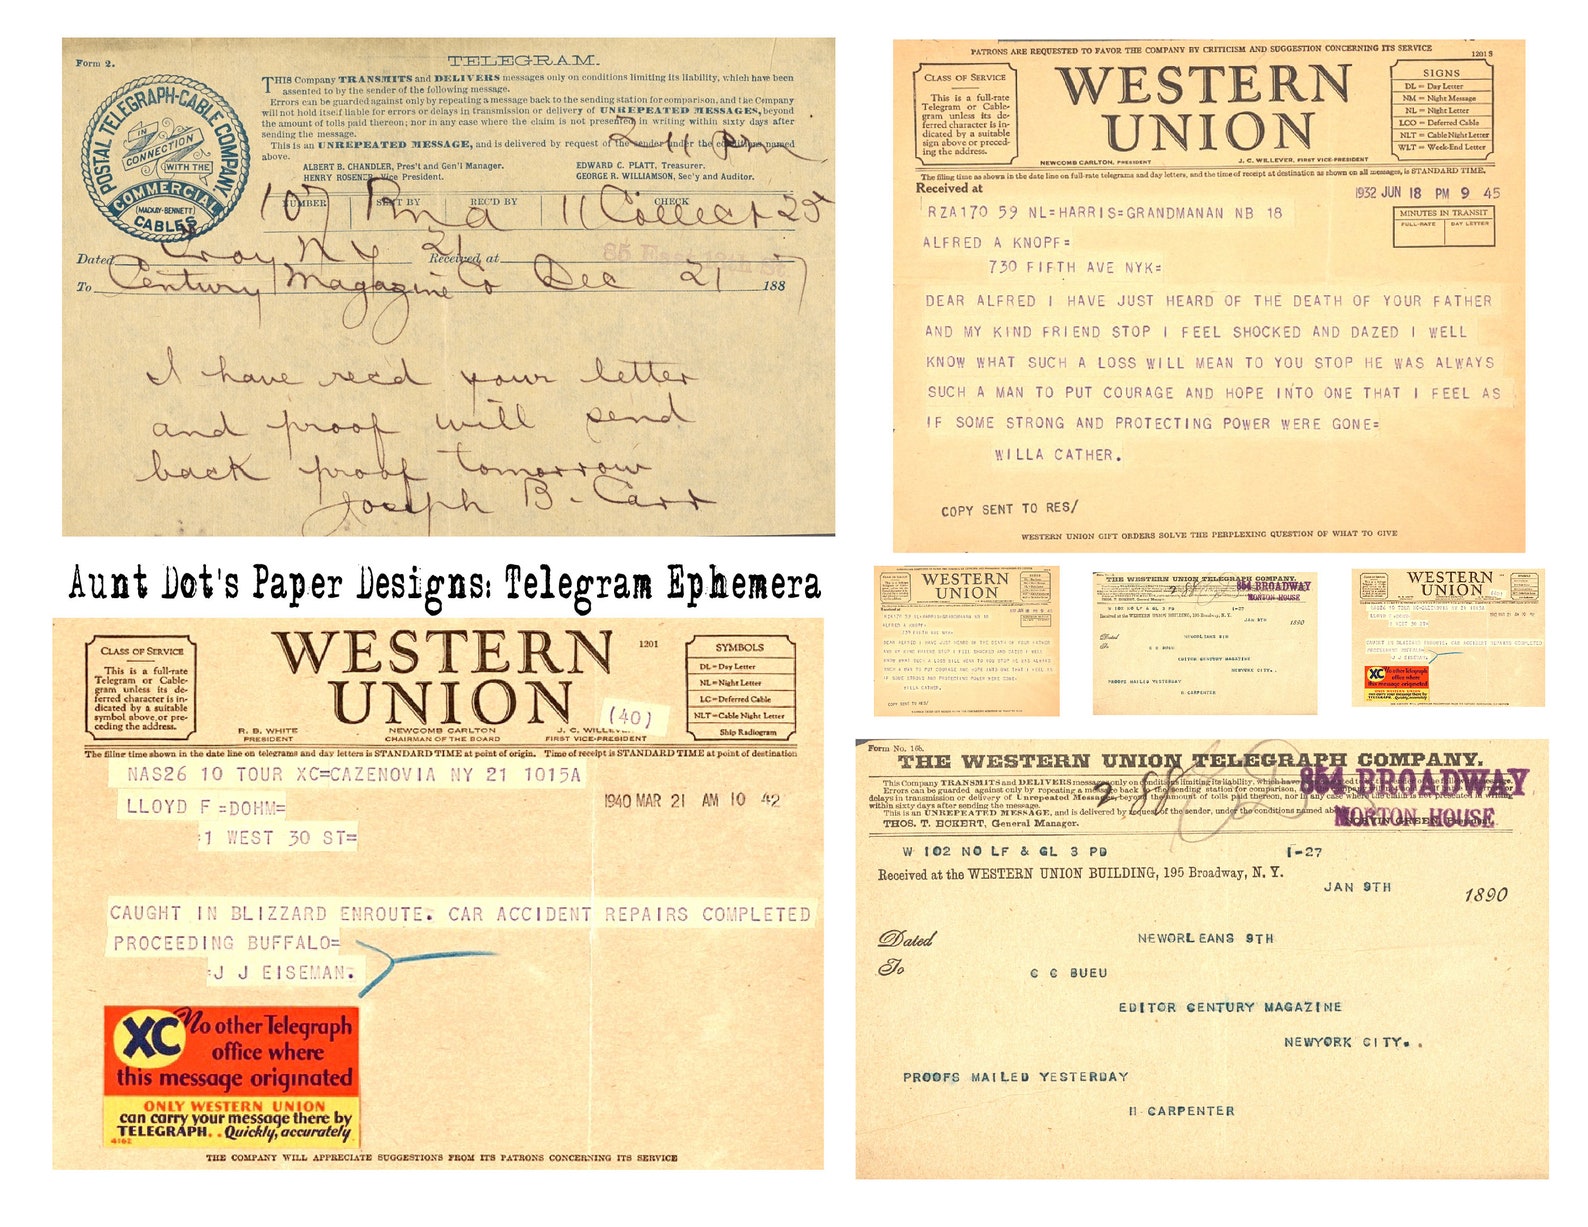 Form 2.
TELEGRAM.
POSTAL TELEGRAPH-CABLE COMPANY
IN
CONNECTION
WITH THE
COMMERCIAL
(MACKAY-BENNETT)
CABLES
THIS Company TRANSMITS and DELIVERS messages only on conditions limiting its liability, which have been
assented to by the sender of the following message.
Errors can be guarded against only by repeating a message back to the sending station for comparison, and the Company
will not hold itself liable for errors or delays in transmission or delivery of UNREPEATED MESSAGES, beyond
the amount of tolls paid thereon; nor in any case where the claim is not presented in writing within sixty days after
sending the message.
This is an UNREPEATED MESSAGE, and is delivered by request of the sender under the conditions named
above.
2 11 Pm
ALBERT B. CHANDLER, Pres't and Gen'l Manager.
EDWARD C. PLATT, Treasurer.
HENRY ROSENER, Vice President.
GEORGE R. WILLIAMSON, Sec'y and Auditor.
NUMBER SENT BY REC'D BY CHECK
107 11 Collect 25
Dated Troy N Y 21 Received at
To Century Magazine Co Dec 21 1887
I have recd your letter
and proof will send
back proof tomorrow
Joseph B. Carr
PATRONS ARE REQUESTED TO FAVOR THE COMPANY BY CRITICISM AND SUGGESTION CONCERNING ITS SERVICE
1201 S
CLASS OF SERVICE
This is a full-rate
Telegram or Cable-
gram unless its de-
ferred character is in-
dicated by a suitable
sign above or preced-
ing the address.
WESTERN
UNION
NEWCOMB CARLTON, PRESIDENT
J. C. WILLEVER, FIRST VICE-PRESIDENT
SIGNS
DL = Day Letter
NM = Night Message
NL = Night Letter
LCO = Deferred Cable
NLT = Cable Night Letter
WLT = Week-End Letter
The filing time as shown in the date line on full-rate telegrams and day letters, and the time of receipt at destination as shown on all messages, is STANDARD TIME.
Received at
1932 JUN 18 PM 9 45
MINUTES IN TRANSIT
FULL-RATE DAY LETTER
RZA170 59 NL=HARRIS=GRANDMANAN NB 18
ALFRED A KNOPF=
730 FIFTH AVE NYK=
DEAR ALFRED I HAVE JUST HEARD OF THE DEATH OF YOUR FATHER
AND MY KIND FRIEND STOP I FEEL SHOCKED AND DAZED I WELL
KNOW WHAT SUCH A LOSS WILL MEAN TO YOU STOP HE WAS ALWAYS
SUCH A MAN TO PUT COURAGE AND HOPE INTO ONE THAT I FEEL AS
IF SOME STRONG AND PROTECTING POWER WERE GONE=
WILLA CATHER.
COPY SENT TO RES/
WESTERN UNION GIFT ORDERS SOLVE THE PERPLEXING QUESTION OF WHAT TO GIVE
Aunt Dot's Paper Designs: Telegram Ephemera
CLASS OF SERVICE
This is a full-rate
Telegram or Cable-
gram unless its de-
ferred character is in-
dicated by a suitable
symbol above or pre-
ceding the address.
WESTERN
UNION
1201
(40)
R. B. WHITE
PRESIDENT
NEWCOMB CARLTON
CHAIRMAN OF THE BOARD
J. C. WILLEVER
FIRST VICE-PRESIDENT
SYMBOLS
DL=Day Letter
NL=Night Letter
LC=Deferred Cable
NLT=Cable Night Letter
Ship Radiogram
The filing time shown in the date line on telegrams and day letters is STANDARD TIME at point of origin. Time of receipt is STANDARD TIME at point of destination
NAS26 10 TOUR XC=CAZENOVIA NY 21 1015A
LLOYD F=DOHM=
1940 MAR 21 AM 10 42
:1 WEST 30 ST=
CAUGHT IN BLIZZARD ENROUTE. CAR ACCIDENT REPAIRS COMPLETED
PROCEEDING BUFFALO=
=J J EISEMAN.
XC
No other Telegraph
office where
this message originated
ONLY WESTERN UNION
can carry your message there by
TELEGRAPH.. Quickly, accurately
4162
THE COMPANY WILL APPRECIATE SUGGESTIONS FROM ITS PATRONS CONCERNING ITS SERVICE
WESTERN
UNION
ALFRED A KNOPF=
730 FIFTH AVE NYK=
WILLA CATHER.
COPY SENT TO RES/
THE WESTERN UNION TELEGRAPH COMPANY.
854 BROADWAY
MORTON HOUSE
W 102 NO LF & GL 3 PD 1-27
JAN 9TH
1890
NEWORLEANS 9TH
C C BUEU
EDITOR CENTURY MAGAZINE
NEWYORK CITY..
PROOFS MAILED YESTERDAY
H CARPENTER
WESTERN
UNION
CAUGHT IN BLIZZARD ENROUTE. CAR ACCIDENT REPAIRS COMPLETED
PROCEEDING BUFFALO=
J J EISEMAN.
XC
No other Telegraph
office where
this message originated
ONLY WESTERN UNION
can carry your message there by
TELEGRAPH.. Quickly, accurately
Form No. 16b.
THE WESTERN UNION TELEGRAPH COMPANY.
This Company TRANSMITS and DELIVERS messages only on conditions limiting its liability, which have
Errors can be guarded against only by repeating a message back to the sending station for comparison,
delays in transmission or delivery of Unrepeated Messages, beyond the amount of tolls paid thereon, nor in any case where the claim is not presented in writing
within sixty days after sending the message.
This is an UNREPEATED MESSAGE, and is delivered by request of the sender, under the conditions named above.
THOS. T. ECKERT, General Manager.
NORVIN GREEN, President.
854 BROADWAY
MORTON HOUSE
W 102 NO LF & GL 3 PD 1-27
Received at the WESTERN UNION BUILDING, 195 Broadway, N. Y.
JAN 9TH
1890
Dated
NEWORLEANS 9TH
To
C C BUEU
EDITOR CENTURY MAGAZINE
NEWYORK CITY..
PROOFS MAILED YESTERDAY
H CARPENTER